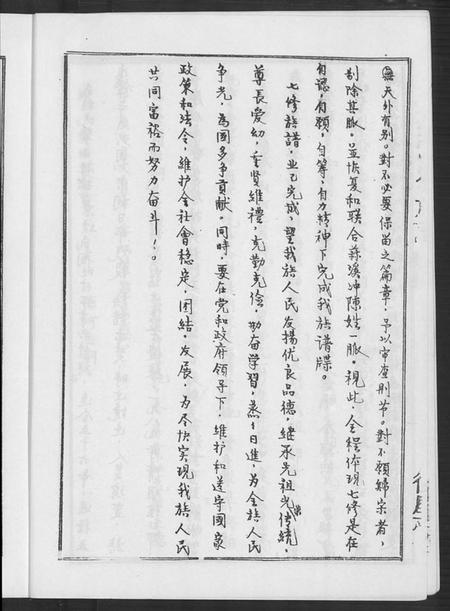 無天外有别。對不必要保苗之篇章,予以审查刪节。對不願歸宗者,
剔除其脈,並恢复和联合蒋溪冲陳姓一脈。視此,全程体現七修是在
自認,自願,自筹,自力精神下完成我族谱牒。
七修族譜,业已完成,望我族人民发揚优良品德,継承先祖光荣传统,
尊長爱幼,重賢維禮,克勤克俭,勤奋学習,蒸蒸日進,为全族人民
争光,為國多争貢献。同時,要在党和政府領导下,維护和遵守國家
政策和法令,維护全社會稳定,团結,发展,为尽快实現我族人民
共同富裕而努力奋斗!。